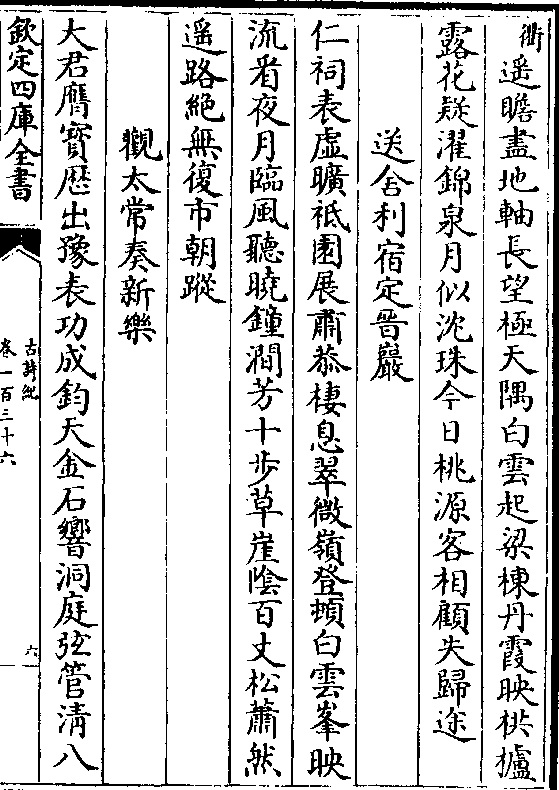 衢遥瞻盡地軸長望極天隅白雲起梁棟丹霞映栱櫨
露花疑濯錦泉月似沈珠今日桃源客相顧失歸途
送舍利宿定晉巖
仁祠表虛曠祗園展肅恭棲息翠微嶺登頓白雲峯映
流看夜月臨風聽曉鐘澗芳十步草崖陰百丈松蕭然
遥路絶無復市朝蹤
觀太常奏新樂
大君膺寶歴出豫表功成鈞天金石響洞庭弦管清八
欽定四庫全書
古詩紀
卷一百三十六
六